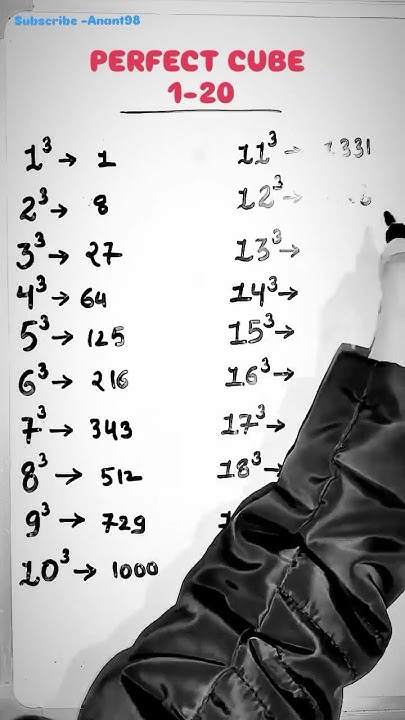 Subscribe -Anant98
PERFECT CUBE
1-20
1³ → 1
2³ → 8
3³ → 27
4³ → 64
5³ → 125
6³ → 216
7³ → 343
8³ → 512
9³ → 729
10³ → 1000
11³ → 1331
12³ →
13³ →
14³ →
15³ →
16³ →
17³ →
18³ →